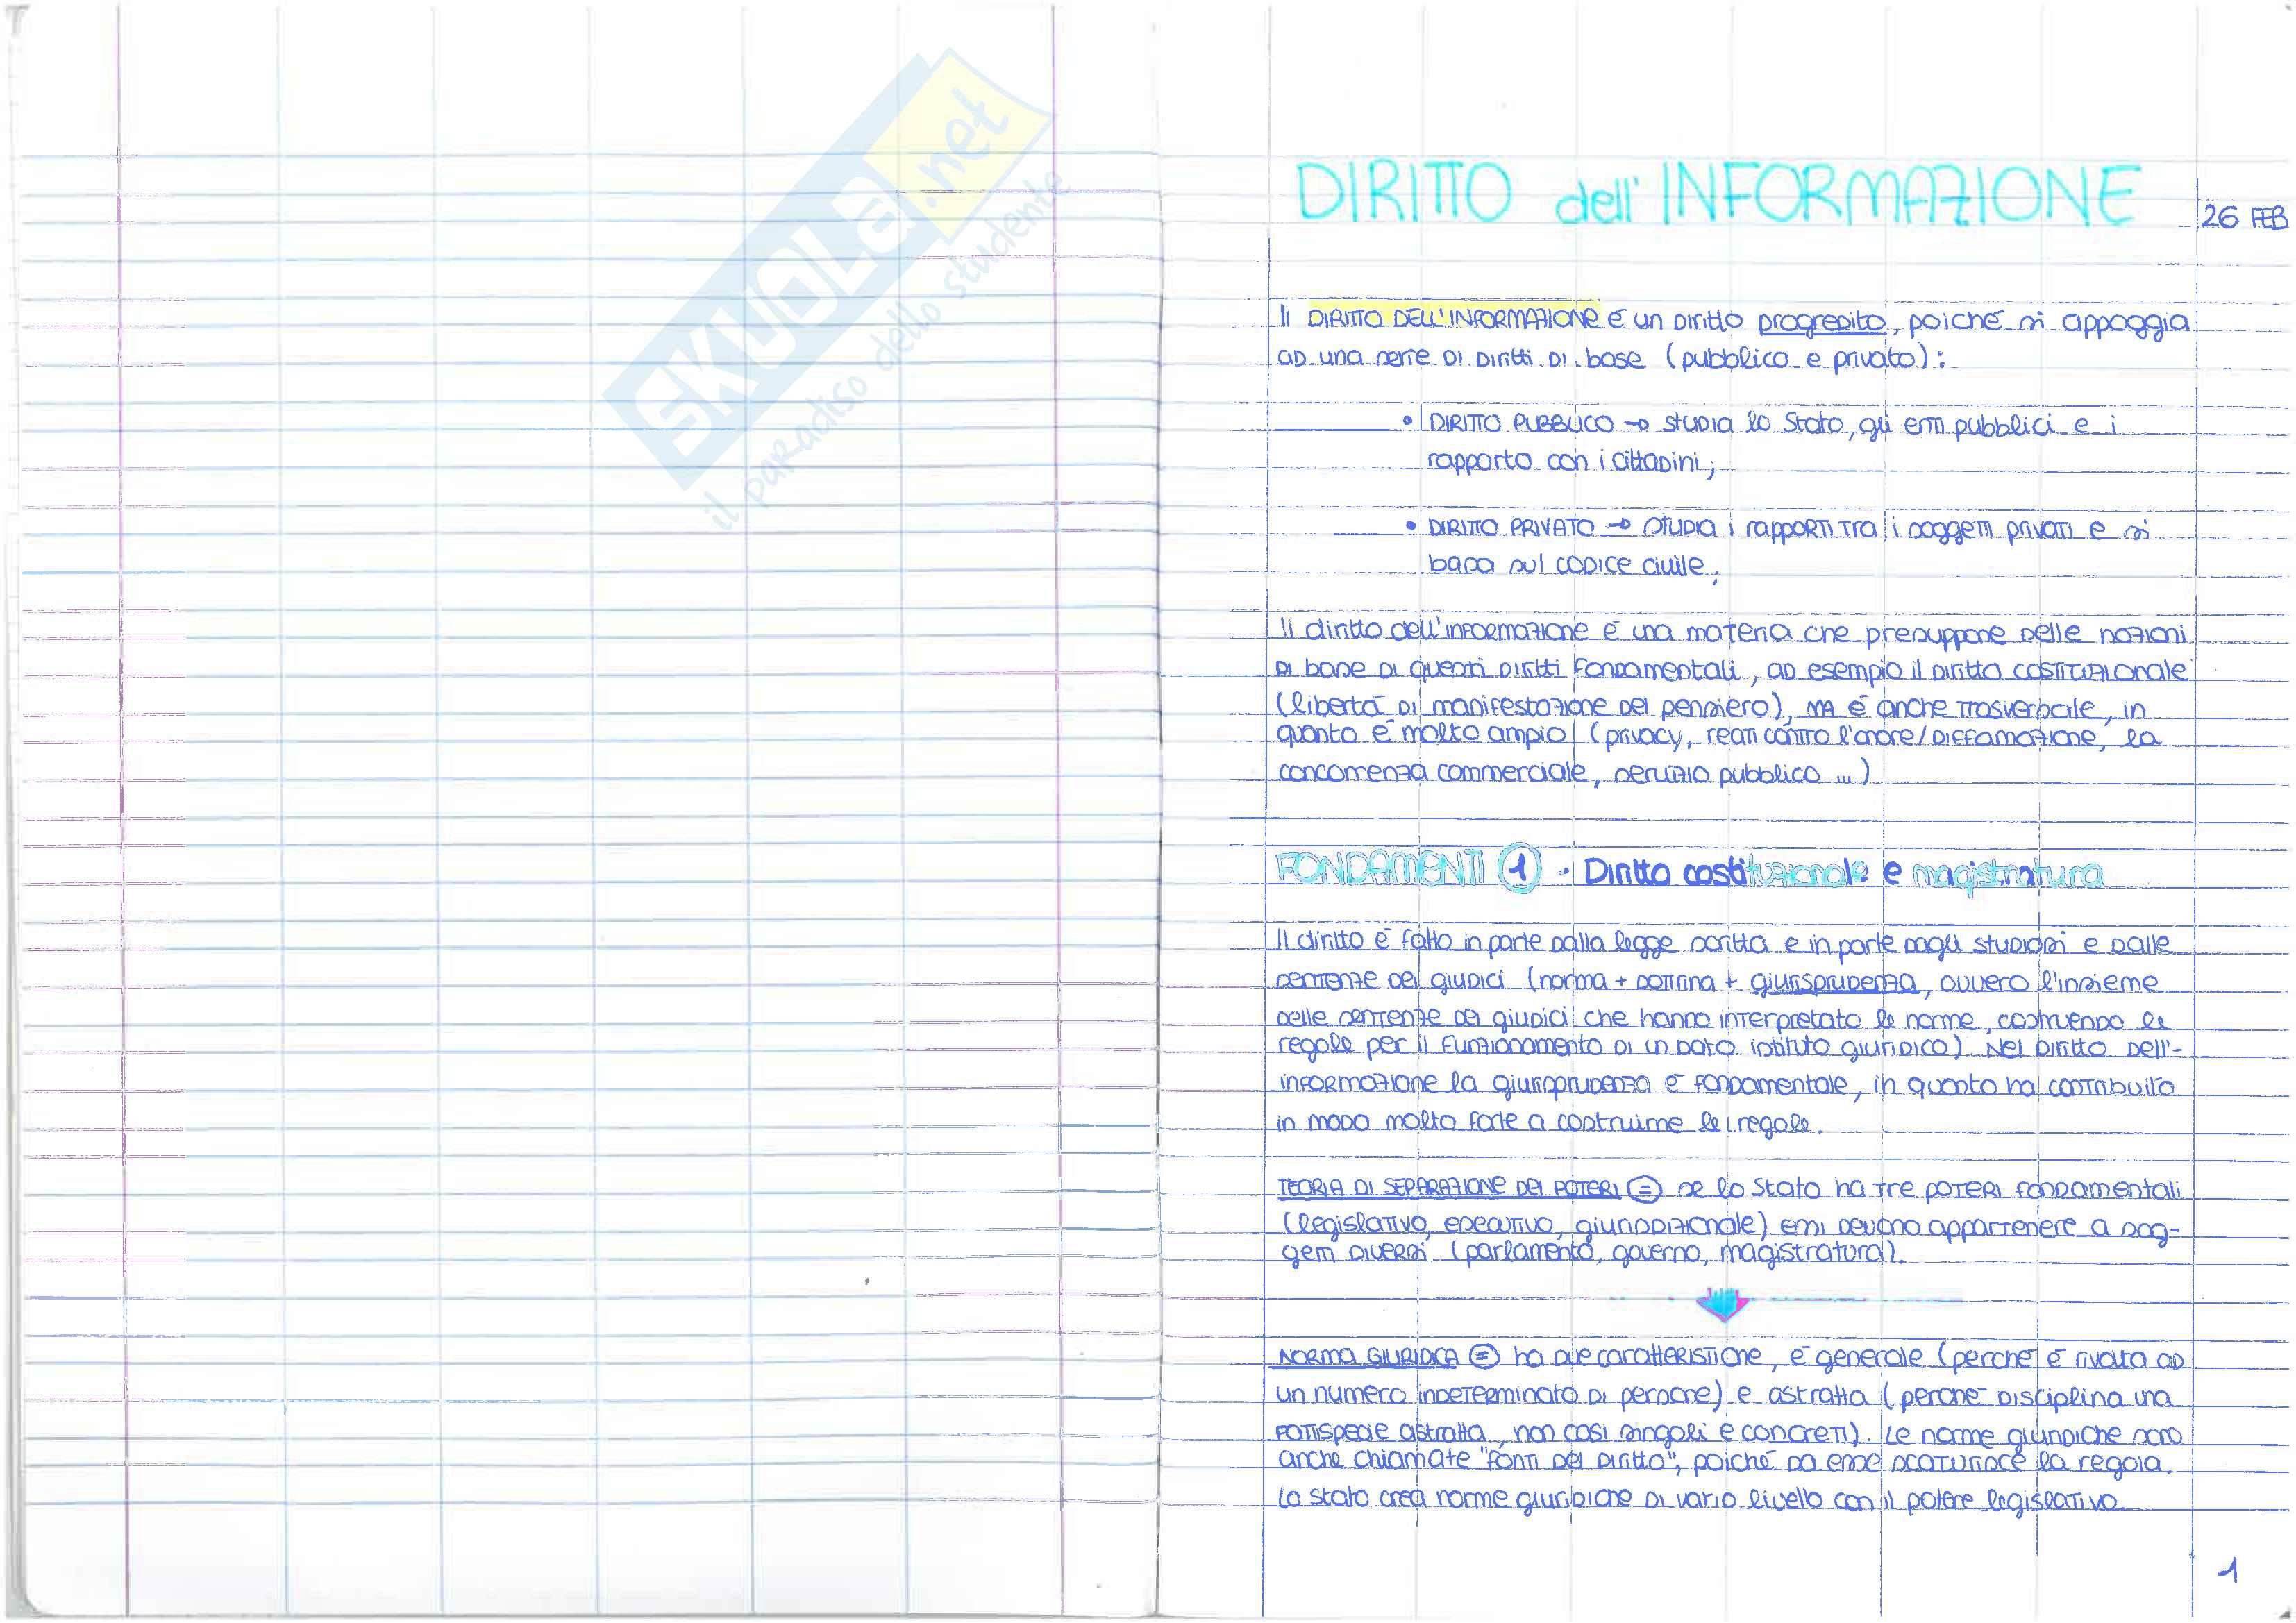 SKUOLA.net
il paradiso dello studente
DIRITTO dell'INFORMAZIONE
26 FEB
Il DIRITTO DELL'INFORMAZIONE è un diritto progredito, poiché si appoggia
ad una serie di diritti di base (pubblico e privato):
• DIRITTO PUBBLICO → studia lo Stato, gli enti pubblici e i
rapporto con i cittadini;
• DIRITTO PRIVATO → studia i rapporti tra i soggetti privati e si
basa sul codice civile;
Il diritto dell'informazione è una materia che presuppone delle nozioni
di base di questi diritti fondamentali, ad esempio il diritto costituzionale
(libertà di manifestazione del pensiero), ma è anche trasversale, in
quanto è molto ampio (privacy, reati contro l'onore/diffamazione, la
concorrenza commerciale, servizio pubblico ...)
FONDAMENTI 1 • Diritto costituzionale e magistratura
Il diritto è fatto in parte dalla legge scritta e in parte dagli studiosi e dalle
sentenze dei giudici (norma + dottrina + giurisprudenza, ovvero l'insieme
delle sentenze dei giudici che hanno interpretato le norme, costruendo le
regole per il funzionamento di un dato istituto giuridico). Nel diritto dell'-
informazione la giurisprudenza è fondamentale, in quanto ha contribuito
in modo molto forte a costruirne le regole.
TEORIA DI SEPARAZIONE DEI POTERI = se lo Stato ha tre poteri fondamentali
(legislativo, esecutivo, giurisdizionale) essi devono appartenere a sog-
getti diversi (parlamento, governo, magistratura).
NORMA GIURIDICA = ha due caratteristiche, è generale (perché è rivolta ad
un numero indeterminato di persone) e astratta (perché disciplina una
fattispecie astratta, non casi singoli e concreti). Le norme giuridiche sono
anche chiamate "fonti del diritto", poiché da esse scaturisce la regola.
Lo stato crea norme giuridiche di vario livello con il potere legislativo.
1